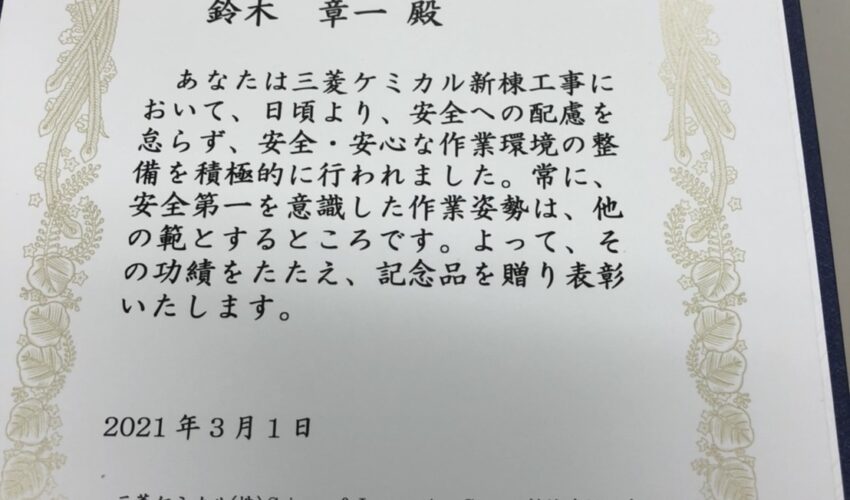 鈴木　章一 殿
あなたは三菱ケミカル新棟工事に
おいて、日頃より、安全への配慮を
怠らず、安全・安心な作業環境の整
備を積極的に行われました。常に、
安全第一を意識した作業姿勢は、他
の範とするところです。よって、そ
の功績をたたえ、記念品を贈り表彰
いたします。
2021年3月1日